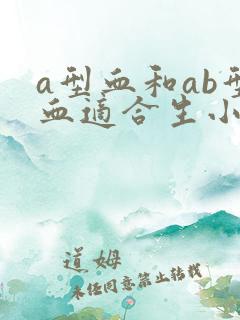 a型血和ab型
血适合生小
道姆
未经同意禁止转载